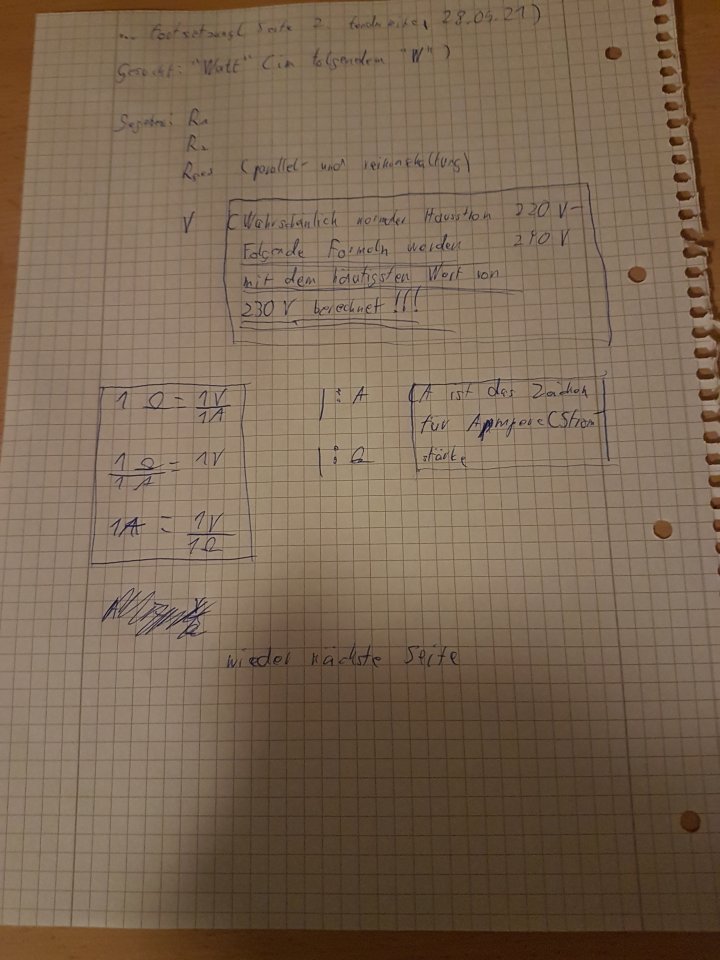 ... Fortsetzung( Seite 2. 28.04.21)
Gesucht: "Watt" (im folgendem "W")
Gegeben: R1
R2
Rges (parallel- und reihenschaltung)
V (Wahrscheinlich normaler Hausstrom 220 V-
Folgende Formeln werden 240 V
mit dem häufigsten Wert von
230 V berechnet!!!
1 Ω = 1V/1A |: A (A ist das Zeichen
für Ampere (Strom-
1Ω/1A = 1V |: Ω stärke
1A = 1V/1Ω
wieder nächste Seite